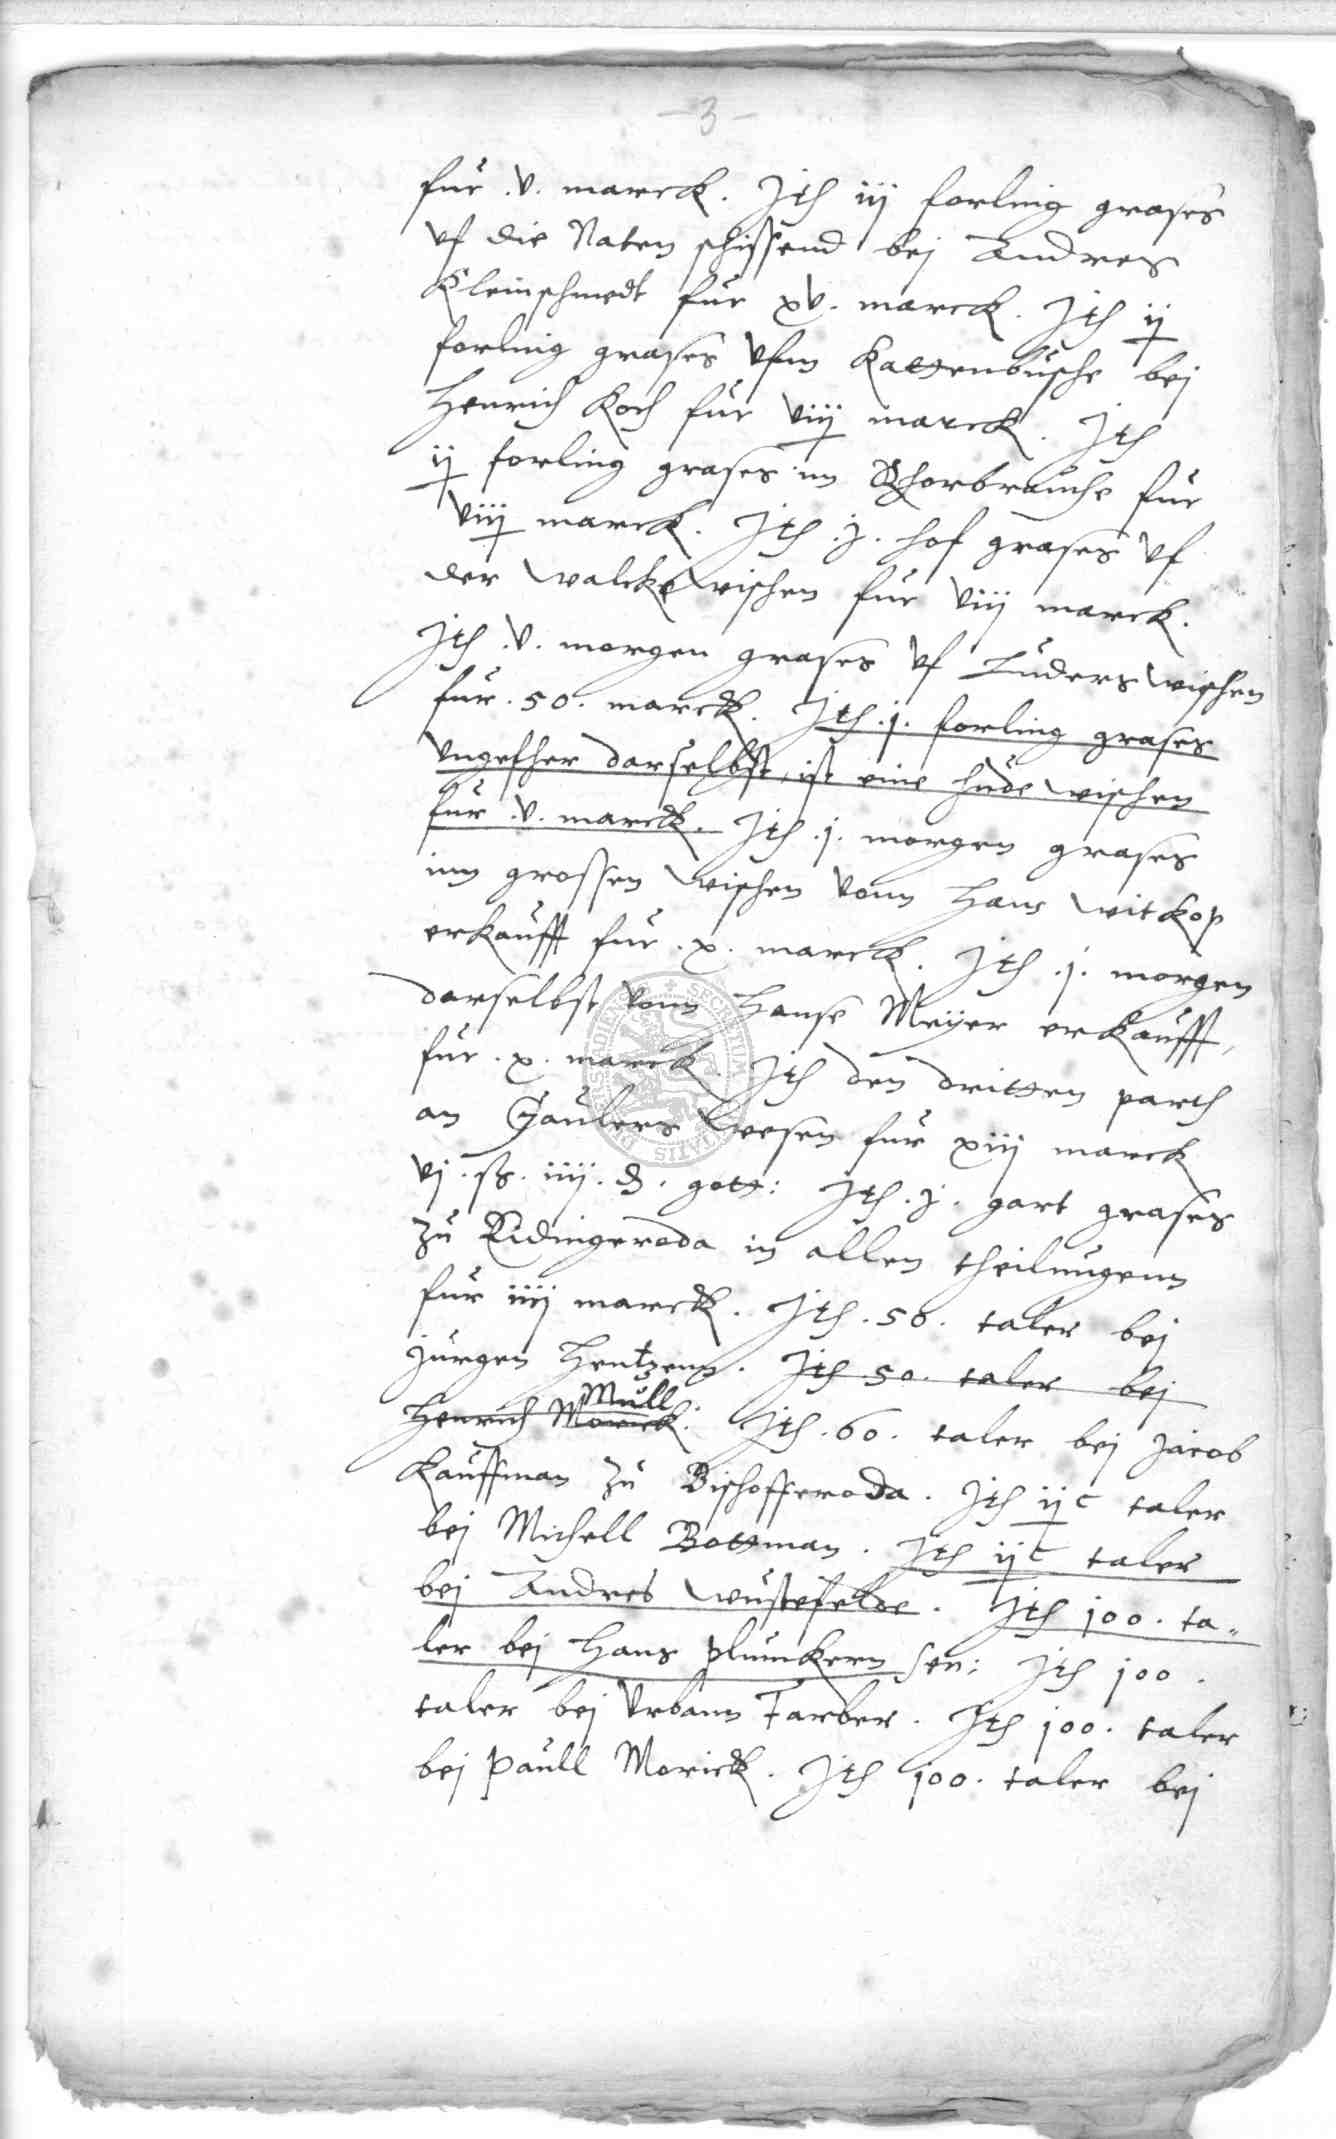 - 3 -
für .v. marck. Jth iij forling grases
vf die Naten schissend bej Andres
Kleinschmedt für xv. marck. Jth ij
forling grases vfm Kattenbusche bej
Henrich Koch für viij marck. Jth
ij forling grases im Rhorbrauche für
viij marck. Jth .j. hof grases vf
der walckewischen für viij marck.
Jth .v. morgen grases vf Luders wischen
für .50. marck. Jth .j. forling grases
vngefher darselbst, ist eine hude wischen
für .v. marck. Jth .j. morgen grases
inn grossen wischen vonn Hans witkop
erkaufft für .x. marck. Jth .j. morgen
darselbst vonn Hanse Meÿer erkaufft,
für .x. marck. Jth den dritten parth
an Gaulers wesen für xiij marck
vj. ß. iiij. d. gott: Jth .j. gart grases
zu Ridingeroda in allen theilungenn
für iiij marck. Jth .50. taler bej
Jurgen Hentzenn. Jth 50. taler bej
Mull
Henrich Morick. Jth .60. taler bej Jacob
Kauffman zu Bischofferoda. Jth ij c taler
bej Michell Bottman. Jth ij c taler
bej Andres wustefelde. Jth 100. ta„
ler bej Hans plunckern sen: Jth 100.
taler bej Vrbann Farber. Jth 100. taler
bej Paull Morick. Jth 100. taler bej
SECRETUM